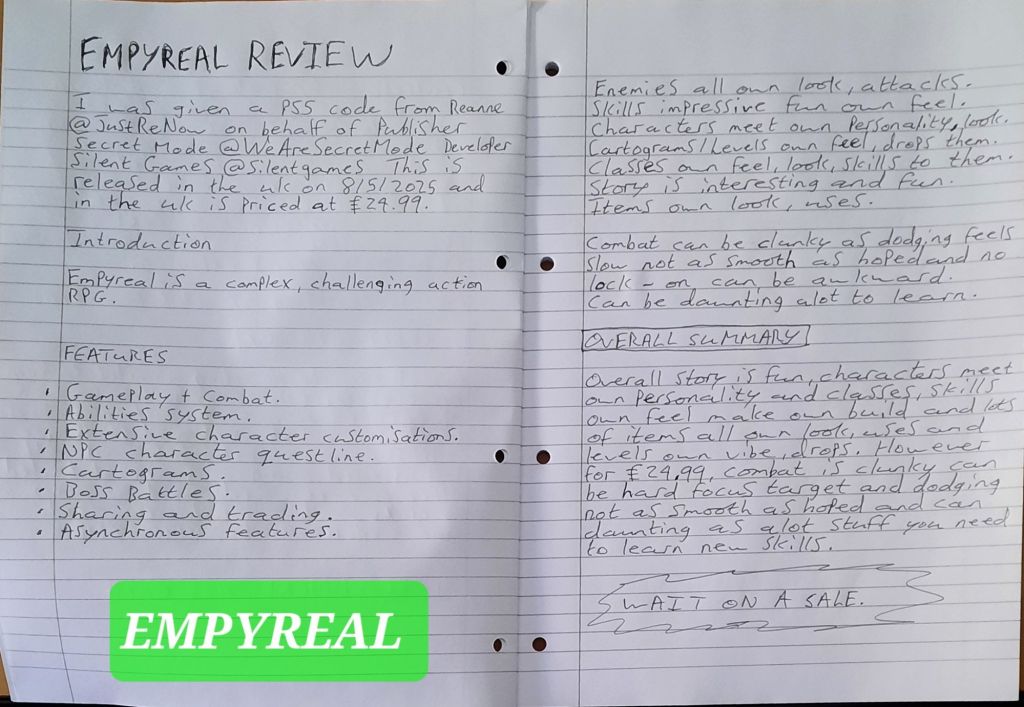 EMPYREAL REVIEW
I was given a PS5 code from Reanne
@JustReNow on behalf of Publisher
Secret Mode @WeAreSecretMode Developer
Silent Games @Silentgames This is
released in the uk on 8/5/2025 and
in the uk is priced at £24.99.
Introduction
Empyreal is a complex, challenging action
RPG.
FEATURES
• Gameplay + Combat.
• Abilities system.
• Extensive character customisations.
• NPC character questline.
• Cartograms.
• Boss Battles.
• Sharing and trading.
• Asynchronous features.
EMPYREAL
Enemies all own look, attacks.
Skills impressive fun own feel.
Characters meet own Personality, look.
Cartograms/Levels own feel, drops them.
Classes own feel, look, skills to them.
Story is interesting and fun.
Items own look, uses.
Combat can be clunky as dodging feels
slow not as smooth as hoped and no
lock-on can be awkward.
Can be daunting alot to learn.
OVERALL SUMMARY
Overall story is fun, characters meet
own personality and classes, skills
own feel make own build and lots
of items all own look, uses and
levels own vibe, drops. However
for £24.99, combat is clunky can
be hard focus target and dodging
not as smooth as hoped and can
daunting as alot stuff you need
to learn new skills.
WAIT ON A SALE.